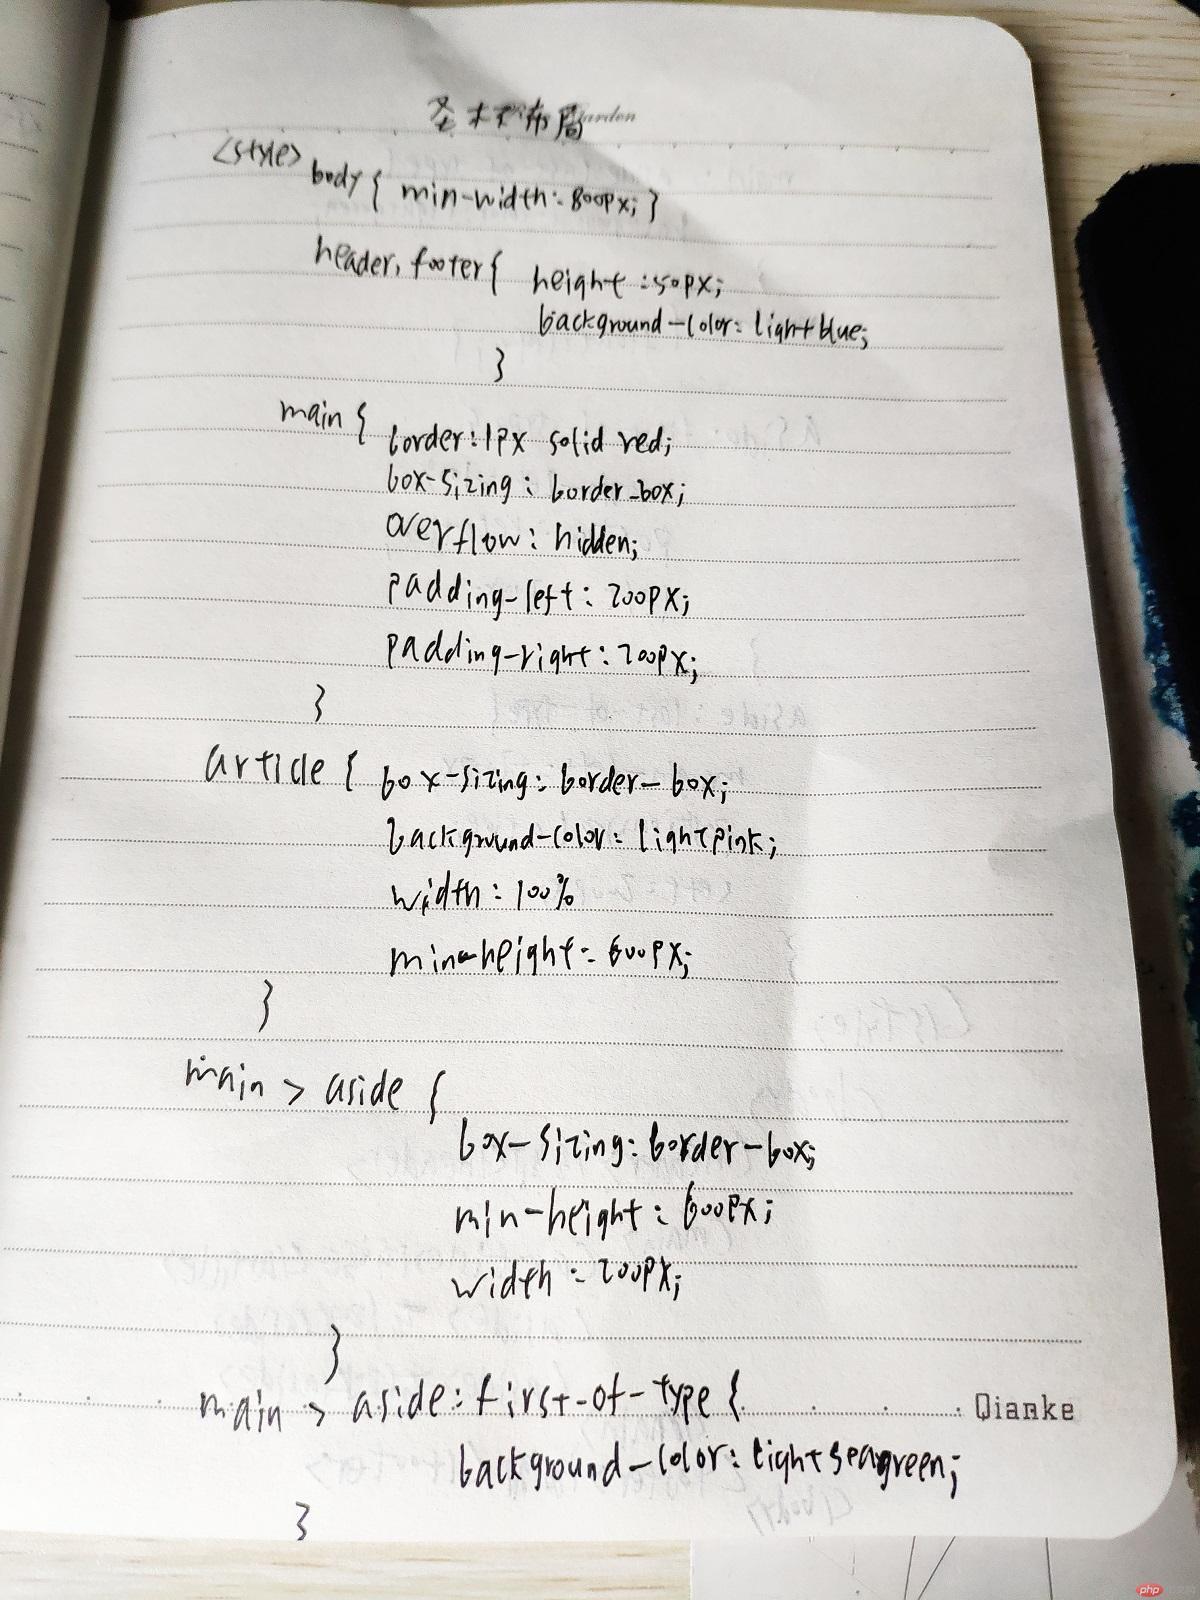 圣杯布局
<style>
body { min-width: 800px; }
header, footer { height: 50px;
background-color: lightblue;
}
main {
border: 1px solid red;
box-sizing: border-box;
overflow: hidden;
padding-left: 200px;
padding-right: 200px;
}
article { box-sizing: border-box;
background-color: lightpink;
width: 100%
min-height: 600px;
}
main > aside {
box-sizing: border-box;
min-height: 600px;
width: 200px;
}
main > aside:first-of-type {
Qianke
background-color: lightseagreen;
}
php